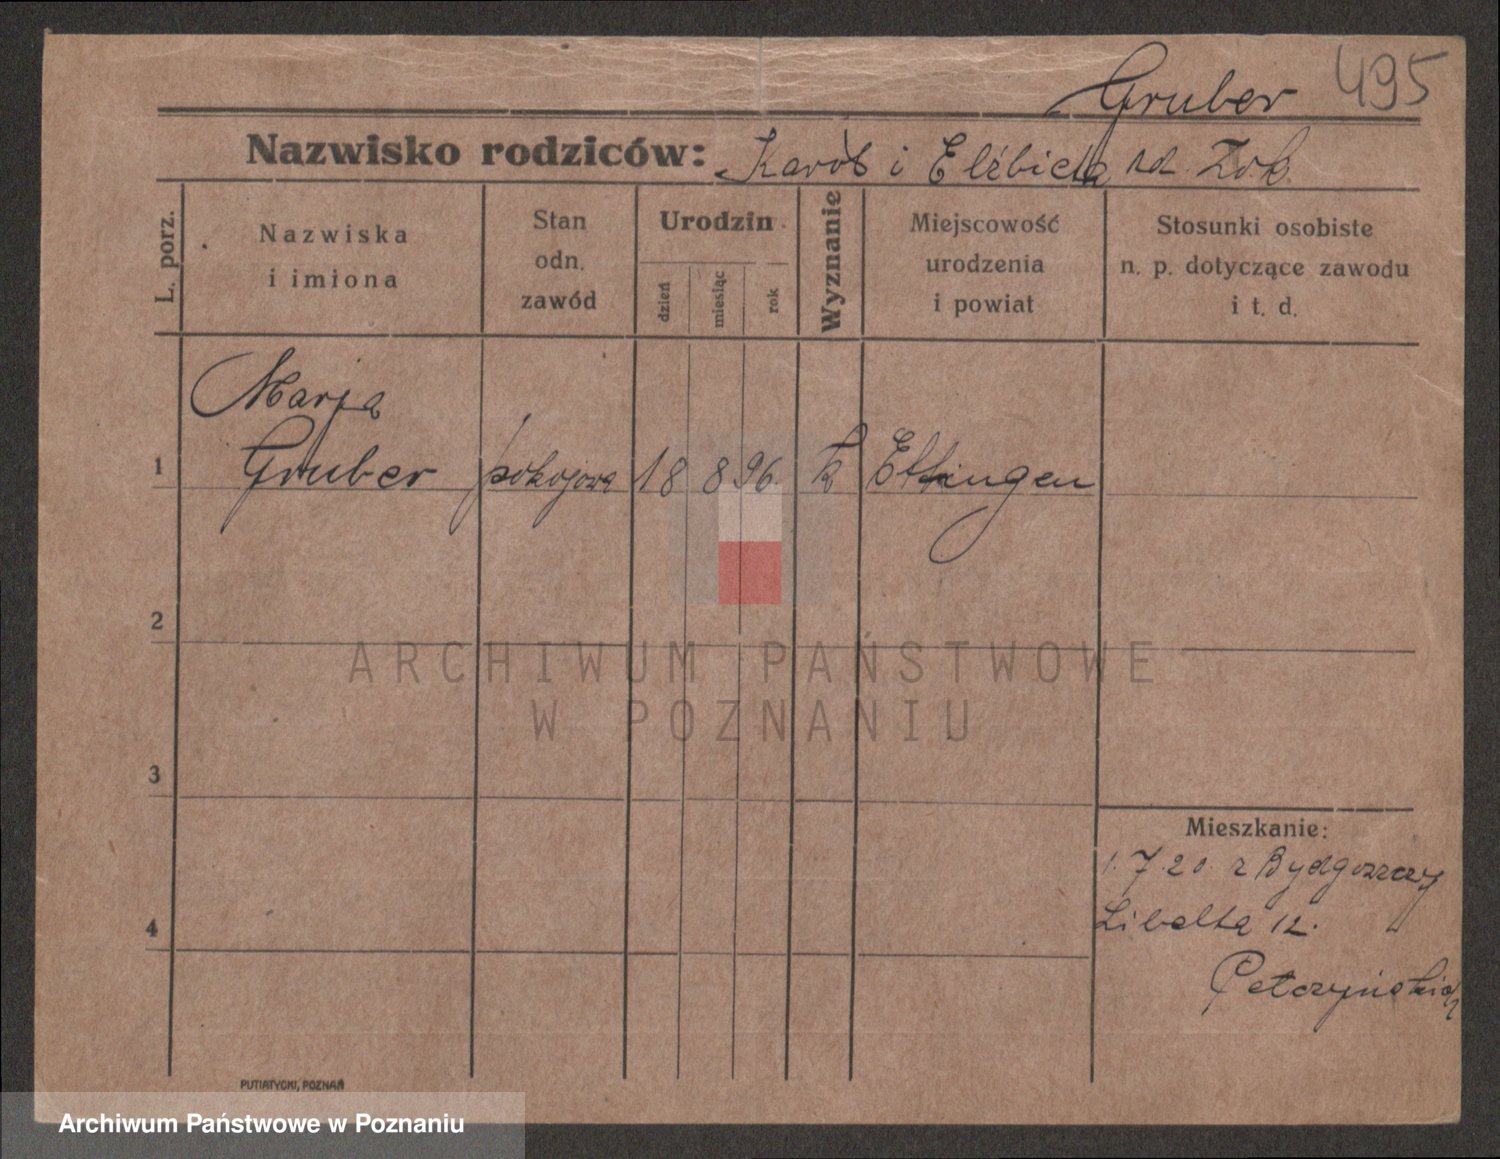 Gruber 495
Nazwisko rodziców: Karol i Elżbieta rd. Zok.
L. porz.
Nazwiska
i imiona
Stan
odn.
zawód
Urodzin
dzień
miesiąc
rok
Wyznanie
Miejscowość
urodzenia
i powiat
Stosunki osobiste
n. p. dotyczące zawodu
i t. d.
Marja
1 Gruber pokojowa 18 8 96. k Ettingen
2
ARCHIWUM PAŃSTWOWE
W POZNANIU
3
Mieszkanie:
1.7.20. z Bydgoszczy
Libelta 12.
4
PUTIATYCKI, POZNAŃ
Archiwum Państwowe w Poznaniu